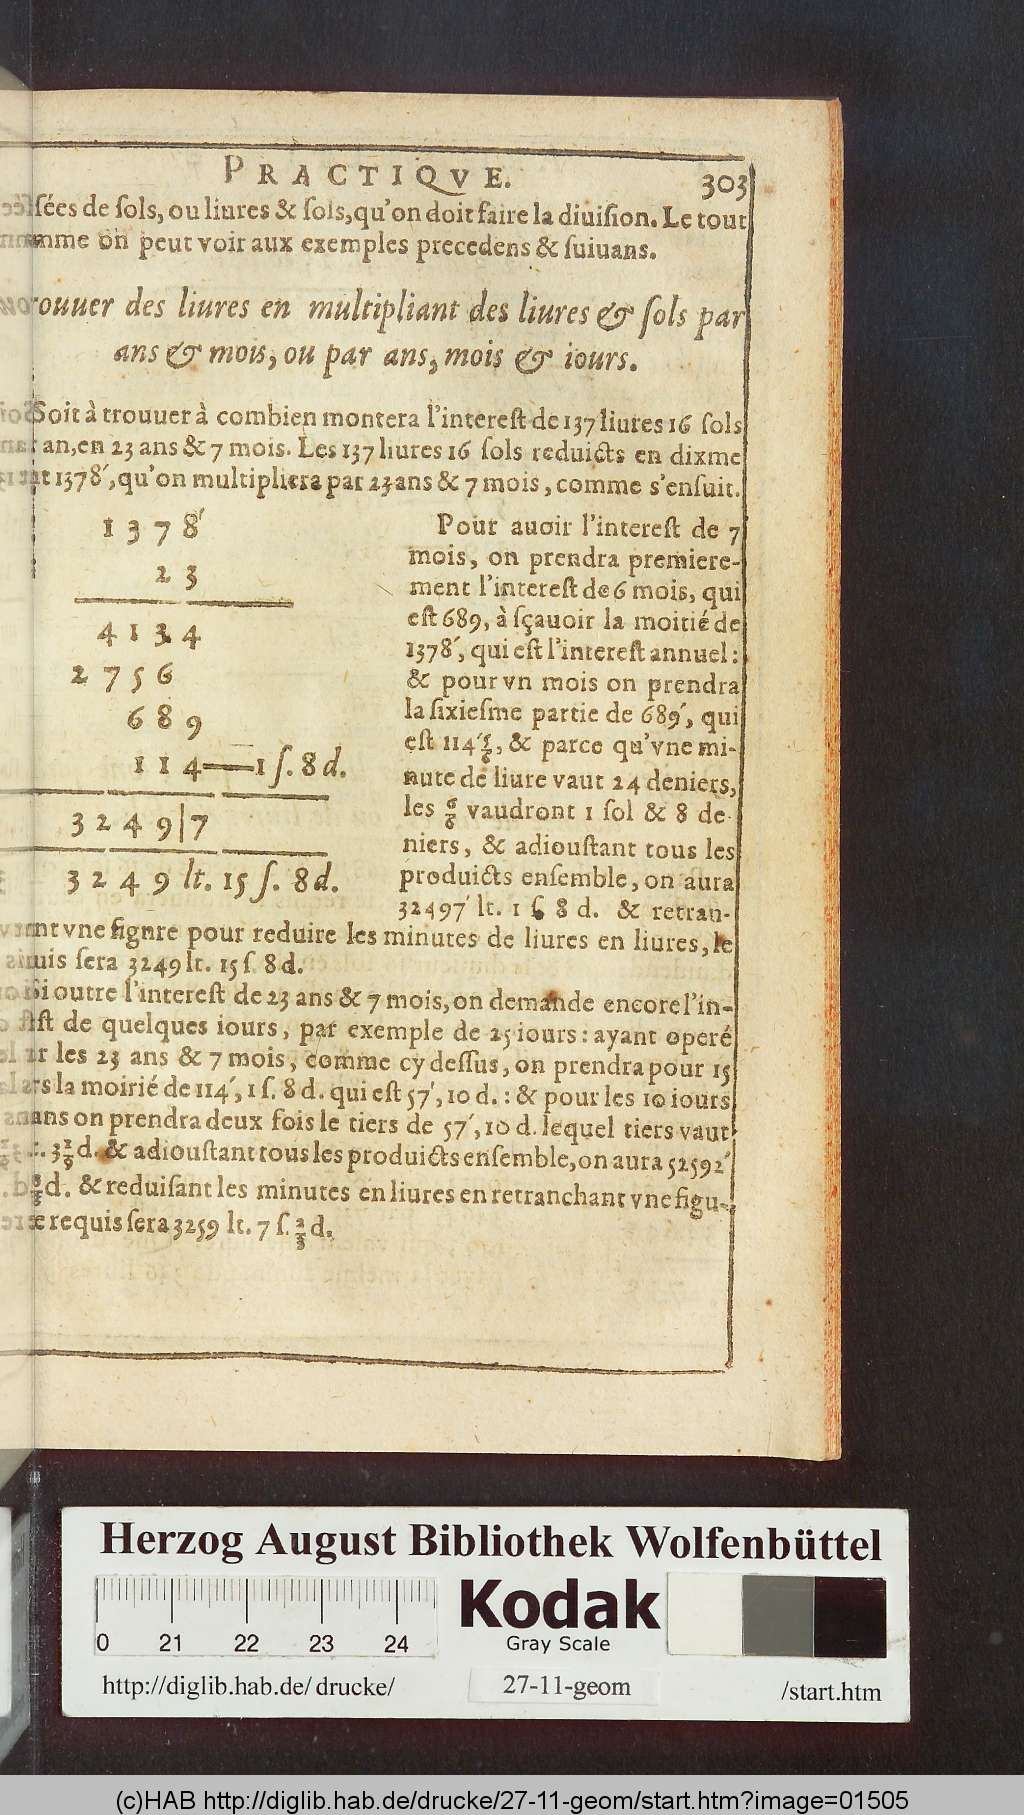 PRACTIQVE. 303
ſées de ſols, ou liures & ſols, qu'on doit faire la diuiſion. Le tout
mme on peut voir aux exemples precedens & ſuiuans.
rouuer des liures en multipliant des liures & ſols par
ans & mois, ou par ans, mois & iours.
Soit à trouuer à combien montera l'intereſt de 137 liures 16 ſols
an, en 23 ans & 7 mois. Les 137 liures 16 ſols reduicts en dixme
1378′, qu'on multipliera par 23 ans & 7 mois, comme s'enſuit.
1378′
23
4134
2756
689
114—1 ſ. 8 d.
3249|7
3249 lt. 15 ſ. 8 d.
Pour auoir l'intereſt de 7
mois, on prendra premiere-
ment l'intereſt de 6 mois, qui
eſt 689, à ſçauoir la moitié de
1378′, qui eſt l'intereſt annuel:
& pour vn mois on prendra
la ſixieſme partie de 689′, qui
eſt 114′ 5/6, & parce qu'vne mi-
nute de liure vaut 24 deniers,
les vaudront 1 ſol & 8 de-
niers, & adiouſtant tous les
produicts enſemble, on aura
32497′ lt. 1 ſ. 8 d. & retran-
nt vne figure pour reduire les minutes de liures en liures, le
uis ſera 3249 lt. 15 ſ. 8 d.
Si outre l'intereſt de 23 ans & 7 mois, on demande encore l'in-
ſt de quelques iours, par exemple de 25 iours: ayant operé
r les 23 ans & 7 mois, comme cy deſſus, on prendra pour 15
rs la moirié de 114′, 1 ſ. 8 d. qui eſt 57′, 10 d.: & pour les 10 iours
ans on prendra deux fois le tiers de 57′, 10 d. lequel tiers vaut
3 2/9 d. & adiouſtant tous les produicts enſemble, on aura 52592′
d. & reduiſant les minutes en liures en retranchant vne figu-
e requis ſera 3259 lt. 7 ſ. 2/3 d.
Herzog August Bibliothek Wolfenbüttel
0 21 22 23 24
Kodak
Gray Scale
http://diglib.hab.de/ drucke/ 27-11-geom /start.htm
(c)HAB http://diglib.hab.de/drucke/27-11-geom/start.htm?image=01505